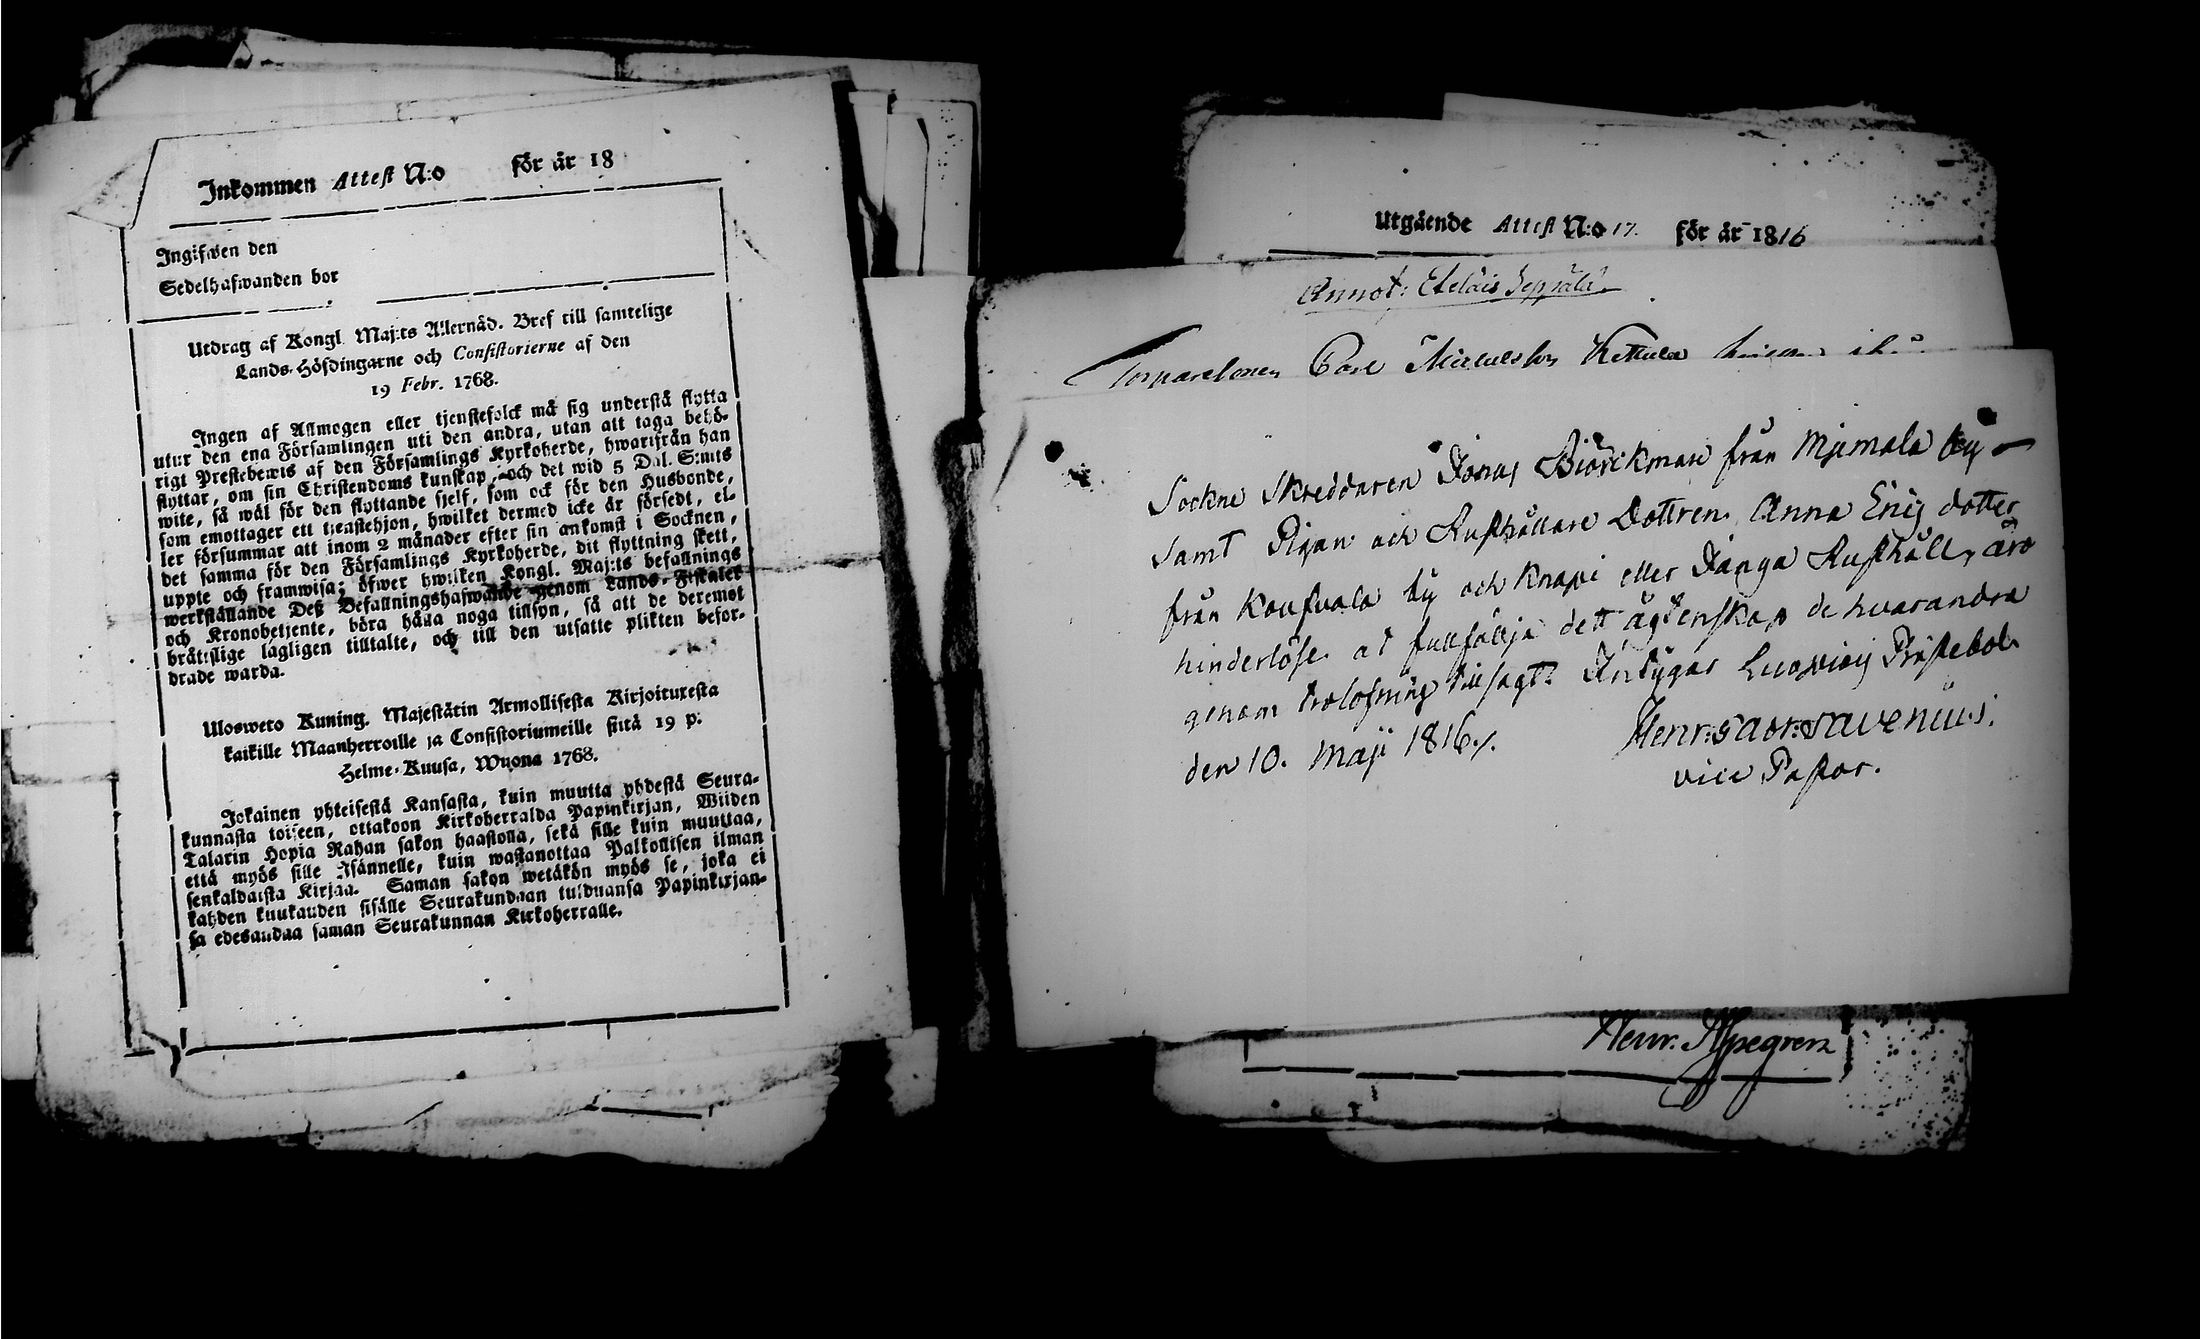 Inkommen Attest N:o för år 18
Ingifwen den
Sedelhafwanden bor
Utdrag af Kongl. Maj:ts Allernåd. Bref till samtelige
Lands-Höfdingarne och Consistorierne af den
19 Febr. 1768.
Ingen af Allmogen eller tjenstefolck må sig understå flytta
utur den ena Församlingen uti den andra, utan att taga behö-
rigt Prestebewis af den Församlings Kyrkoherde, hwarifrån han
flyttar, om sin Christendoms kunskap, och det wid 5 Dal. S:mts
wite, så wäl för den flyttande sjelf, som ock för den Husbonde,
som emottager ett tjenstehjon, hwilket dermed icke är försedt, el-
ler försummar att inom 2 månader efter sin ankomst i Socknen,
det samma för den Församlings Kyrkoherde, dit flyttning skett,
uppte och framwisa; öfwer hwilken Kongl. Maj:ts befallnings
werkställande Deß Befallningshafwande genom Lands-Fiskaler
och Kronobetjente, böra hålla noga tillsyn, så att de deremot
bråtslige lagligen tilltalte, och till den utsatte plikten befor-
drade warda.
Ulosweto Kuning. Majestätin Armollisesta Kirjoituxesta
kaikille Maanherroille ja Consistoriumeille siitä 19 p:
Helme-Kuusa, Wuona 1768.
Jokainen yhteisestä Kansasta, kuin muutta yhdestä Seura-
kunnasta toiseen, ottakoon Kirkoherralda Papinkirjan, Wiiden
Talarin Hopia Rahan sakon haastolla, sekä sille kuin muuttaa,
että myös sille Isännelle, kuin wastanottaa Palkollisen ilman
senkaldaista Kirjaa. Saman sakon wetäkön myös se, joka ei
kahden kuukauden sisälle Seurakundaan tulduansa Papinkirjan-
sa edesandaa saman Seurakunnan Kirkoherralle.
Utgående Attest N:o 17. för år 1816
Annot: Eteläis Seppälä.
Torparesonen Carl Michelsson Kettula
Sockne Skreddaren Jonas Biörckman från Mjemala by
samt Pigan och Rusthållare Dottren Anna Erics dotter
från Koufvala by och Knapi eller Jänga Rusthåll, äro
hinderlöse at fullfölja dett ägtenskap de hvarandra
genom trolofning tillsagt. Intygar Ludvigs Prästebol
den 10. Maji 1816./.
Henr: Gabr: Savenius.
vice Pastor.
Henr. Alpegren